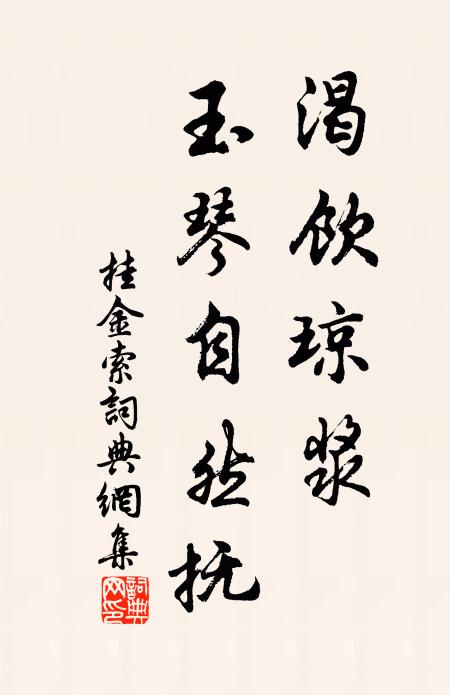 渴飲琼漿
玉琴自然抚
挂金索詞典網集
詞典网印